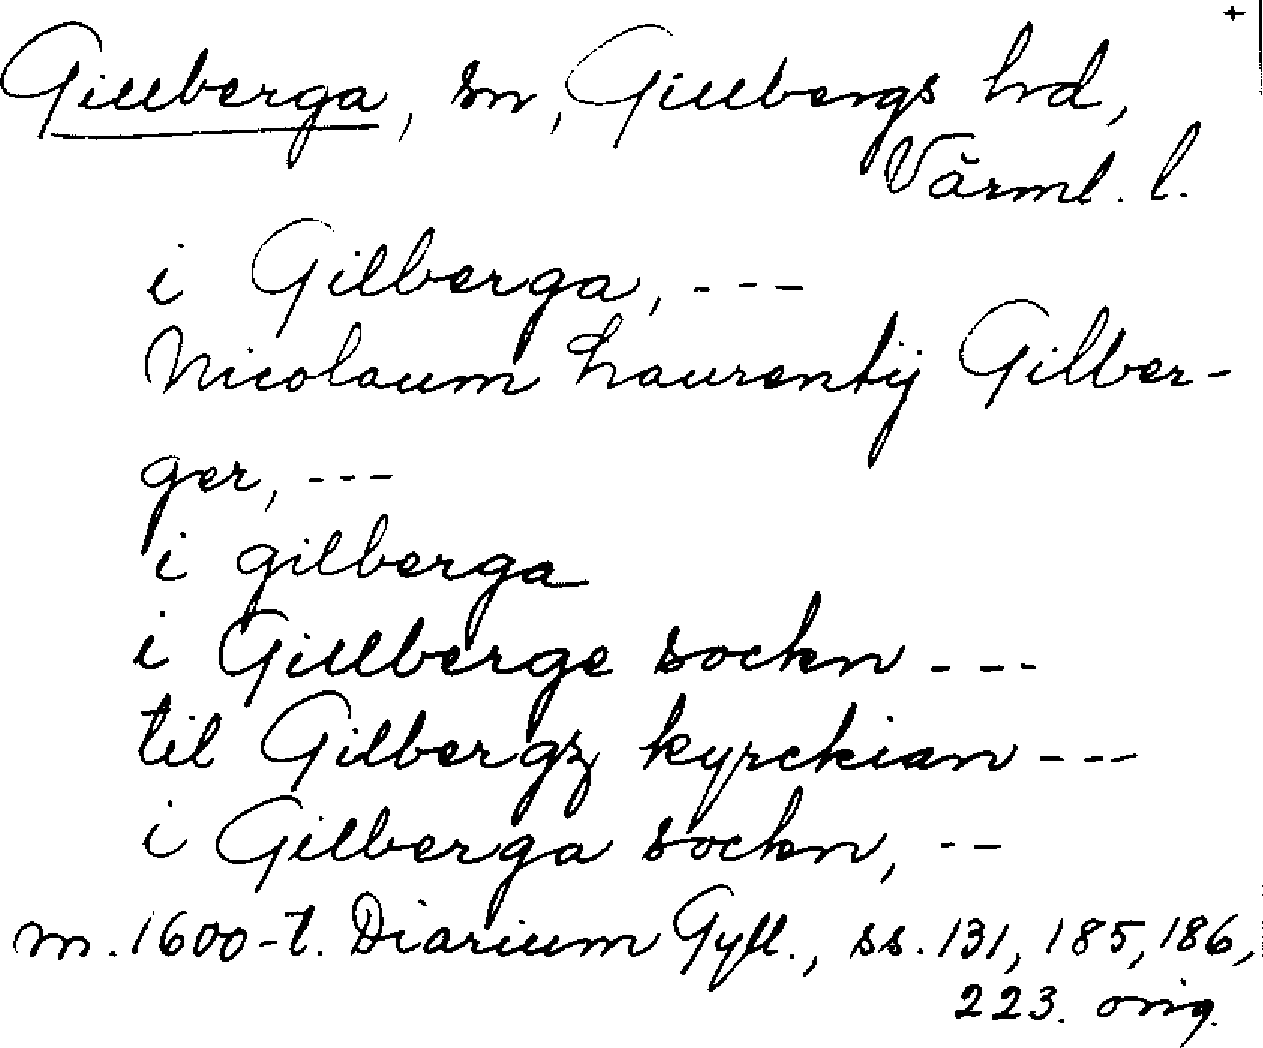 +
Gillberga, sn, Gillbergs hd,
Värml. l.
i Gilberga, ---
Nicolaum Laurentij Gilber-
ger, ---
i gilberga
i Gillberge sockn ---
til Gilbergz kyrckian ---
i Gilberga sockn, --
m. 1600-t. Diarium Gyll., ss. 131, 185, 186,
223. orig.